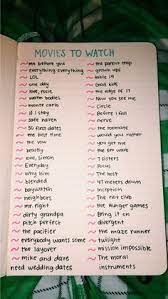 MOVIES TO WATCH
me before you
everything everything
LOL
one day
love, rosie
warm bodies
monte carlo
if I stay
safe haven
50 first dates
the vow
beastly
love, simon
Everyday
blended
baywatch
neighbors
mr. right
dirty grandpa
pitch perfect
the pacifier
everybody wants some
the layover
mike and dave
need wedding dates
the parent trap
grown ups
good kids
the edge of 17
Now you see me
Circle
before I fall
nerve
the roommate
would you rather
you get me
the err wave
7 sisters
focus
The lost
47 meters down
Inception
the net club
the hunger games
Bring it on
divergent
the maze runner
twilight
mission impossible
The mortal
instruments